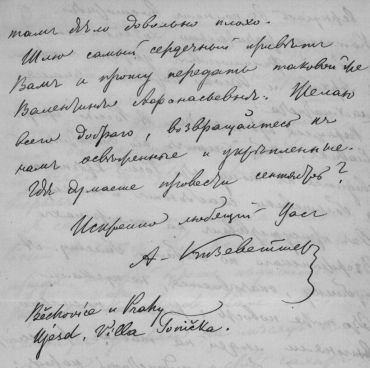 тамъ дѣло довольно плохо.
Шлю самый сердечный привѣтъ
Вамъ и прошу передать таковой же
Валентинѣ Афанасьевнѣ. Желаю
всего добраго, возвращайтесь къ
намъ освѣженные и укрѣпленные.
Гдѣ думаете провести сентябрь?
Искренно любящій Васъ
А. Кизеветтеръ
Běchovice u Prahy
Ujezd, Villa Tonička.